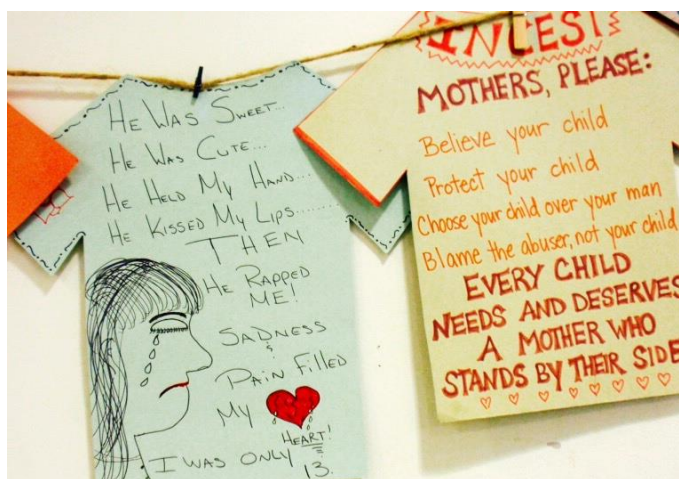 He Was Sweet...
He Was Cute...
He Held My Hand...
He Kissed My Lips........
THEN
He Rapped
ME!
SADNESS
&
PAIN Filled
My
HEART!
I WAS ONLY
13.
INCEST
MOTHERS, PLEASE:
Believe your child
Protect your child
Choose your child over your man
Blame the abuser, not your child
EVERY CHILD
NEEDS AND DESERVES
A MOTHER WHO
STANDS BY THEIR SIDE